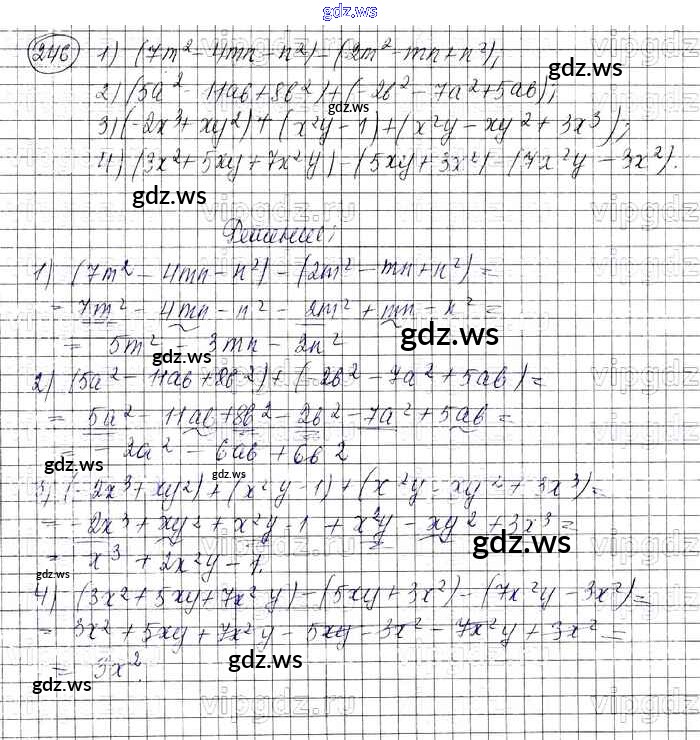 gdz.ws
246 1) (7m² - 4mn - n²) - (2m² - mn + n²);
2) (5a² - 11ab + 8b²) + (-2b² - 7a² + 5ab);
3) (-2x³ + xy²) + (x²y - 1) + (x²y - xy² + 3x³);
4) (3x² + 5xy + 7x²y) - (5xy + 3x²) - (7x²y - 3x²).
Решение:
1) (7m² - 4mn - n²) - (2m² - mn + n²) =
= 7m² - 4mn - n² - 2m² + mn - n² =
= 5m² - 3mn - 2n²
2) (5a² - 11ab + 8b²) + (-2b² - 7a² + 5ab) =
= 5a² - 11ab + 8b² - 2b² - 7a² + 5ab =
= -2a² - 6ab + 6b²
3) (-2x³ + xy²) + (x²y - 1) + (x²y - xy² + 3x³) =
= -2x³ + xy² + x²y - 1 + x²y - xy² + 3x³ =
= x³ + 2x²y - 1.
4) (3x² + 5xy + 7x²y) - (5xy + 3x²) - (7x²y - 3x²) =
= 3x² + 5xy + 7x²y - 5xy - 3x² - 7x²y + 3x² =
= 3x².